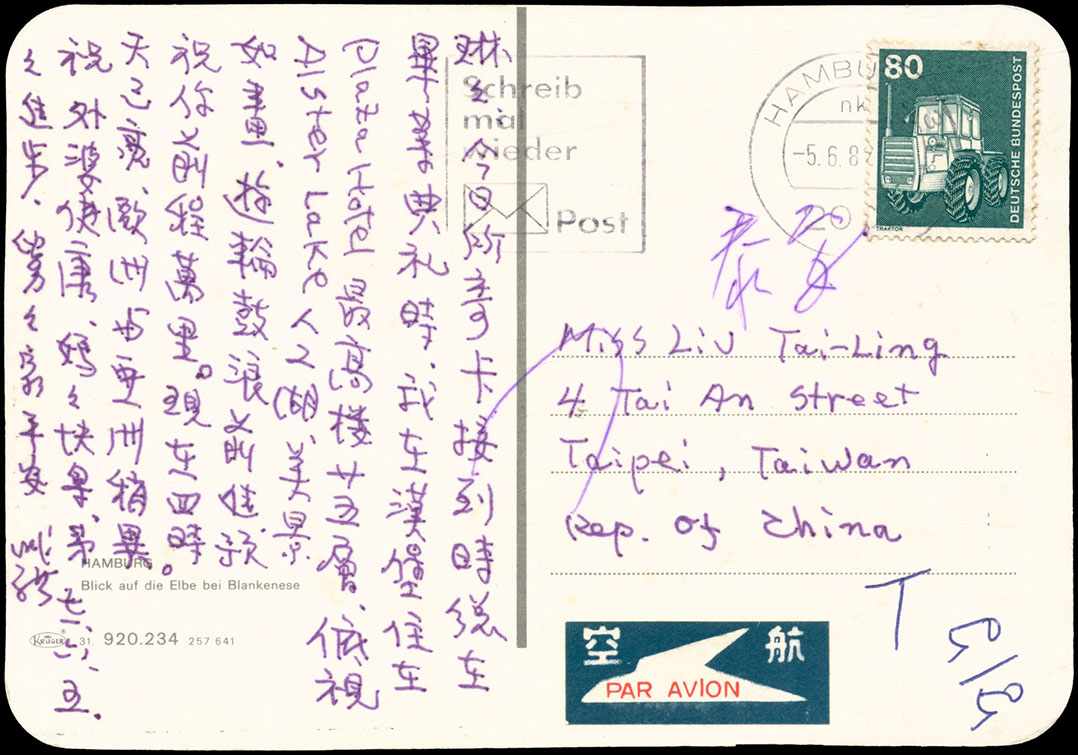 琳々:今日所寄卡接到時總在
畢業典礼時,我在漢堡住在
Plaza Hotel 最高樓廿五層,低視
Alster Lake 人工湖,美景
如畫,遊輪鼓浪前進,預
祝你前程萬里。現在四時
天已亮,歐洲与亞洲稍異。
祝外婆健康,媽々快樂,弟
々進步,舅々家平安
HAMBURG
Blick auf die Elbe bei Blankenese
KRÜGER 31 920.234 257 641
Schreib
mal
wieder
Post
HAMBU
nk
-5.6.8
20
80
DEUTSCHE BUNDESPOST
TRAKTOR
泰安
Miss Liu Tai-Ling
4 Tai An Street
Taipei, Taiwan
Rep. of China
T
空 航
PAR AVION